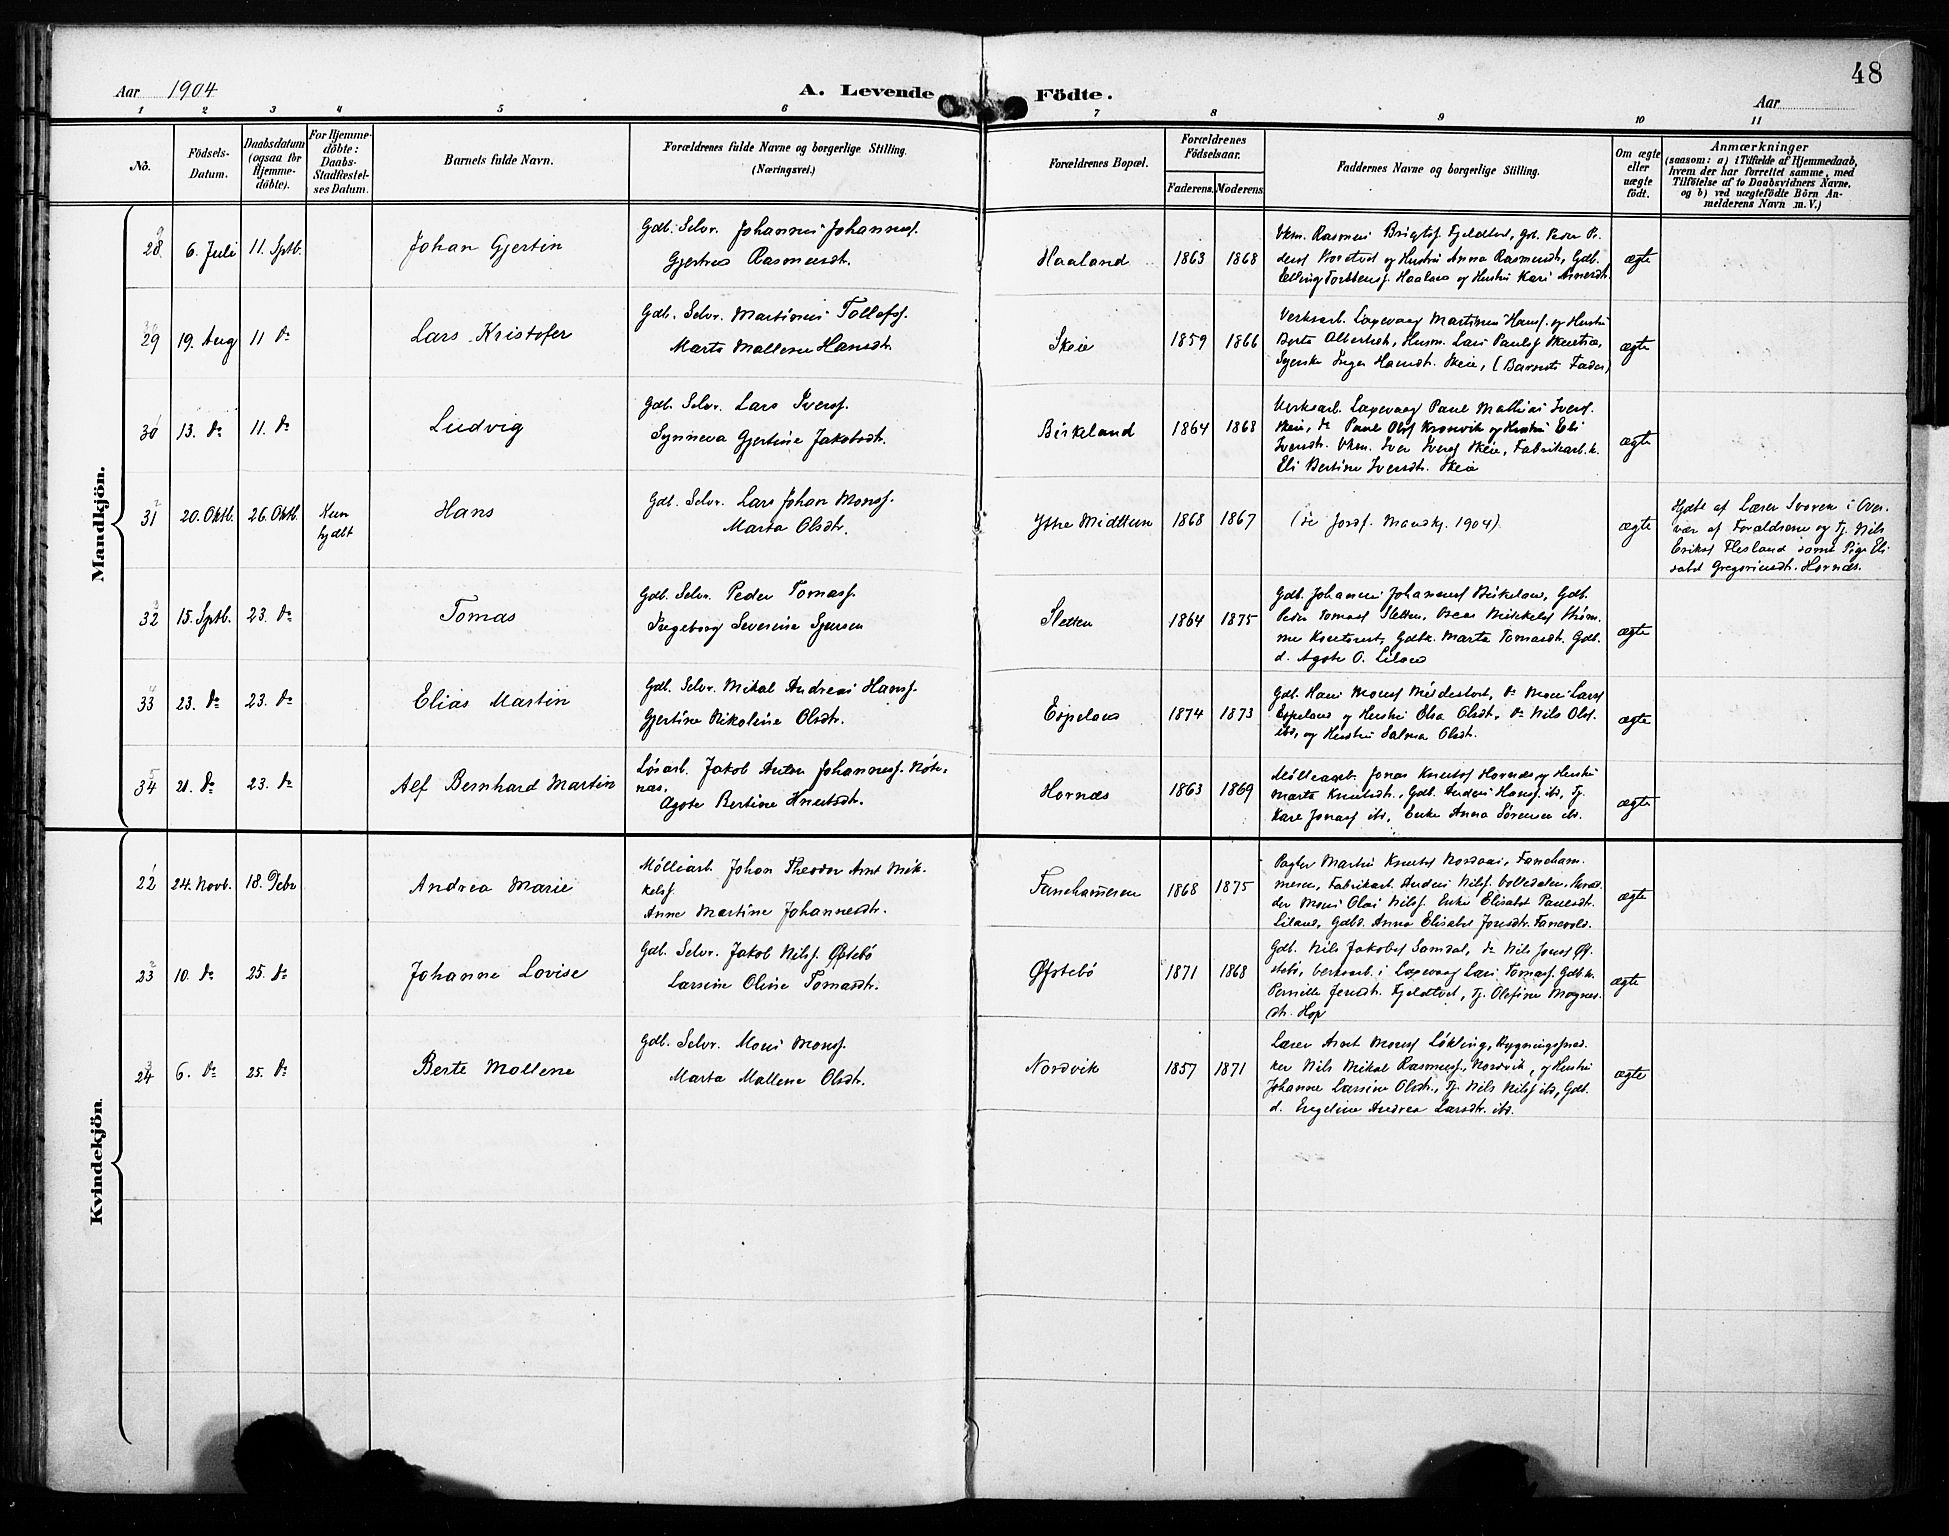 48
Aar 1904
A. Levende Födte.
Aar
1 2 3 4 5 6 7 8 9 10 11
No.
Födsels-Datum.
Daabsdatum (ogsaa for Hjemme-döbte).
For Hjemme-döbte: Daabs-Stadfæstel-ses Datum.
Barnets fulde Navn.
Forældrenes fulde Navne og borgerlige Stilling.
(Næringsvei.)
Forældrenes Bopæl.
Forældrenes Födselsaar.
Faderens. Moderens
Faddernes Navne og borgerlige Stilling.
Om ægte eller uægte födt.
Anmærkninger
(saasom: a) i Tilfælde af Hjemmedaab,
hvem der har forrettet samme, med
Tilföielse af to Daabsvidners Navne,
og b) ved uægtefödte Börn An-
melderens Navn m. V.)
Mandkjön.
28 6. Juli 11. Sptb. Johan Gjertin
Gdb. Selvr. Johannes Johanness.
Gjertrud Rasmusdt.
Haaland 1863 1868
Vkm. Rasmus Brigts. Fjeldtvet, Gdb. Peder Pe-
ders og Hustru Anna Rasmusdt, Gdb.
Elling Torbbens. Haaland og Hustru Kari Arnesdt.
ægte
29 19. Aug 11 do Lars Kristofer
Gdb. Selvr. Martinus Tollefs.
Marta Mallene Hansdt.
Skeie 1859 1866
Verksarb. Laxevaag Martinus Hans. og Hustru
Berta Olbertsdt, Husm. Lars Pauls
Inger Hansdt. Skeie, (Barnets Fader)
ægte
30 13. do 11. do Ludvig
Gdb. Selvr. Lars Ivers.
Synneva Gjertine Jakobsdt.
Birkeland 1864 1868
Verksarb. Laxevaag Paul Mathias Ivers.
Skeie, do Paul Ols. og Hustru Eli
Iversdt. Vkm. Iver Ivers Skeie, Fabrikarb.k.
Eli Bertine Iversdt. Skeie
ægte
31 20. Oktb. 26. Oktb. Kun hjdbt Hans
Gdb. Selvr. Lars Johan Mons.
Marta Olsdtr.
Ytre Midttun 1868 1867
(se Jordf. Mandkj. 1904).
ægte
Hjdbt af Lærer Svoren i Over-
vær af Forældrene og Tj. Nils
Eriks Flesland samt Pige Eli
sabet Gregoriusdt. Hornæs.
32 15. Sptb. 23. do Tomas
Gdb. Selvr. Peder Tomass.
Ingeborg Severine Sjursen
Sletten 1864 1875
Gdb. Johannes Johannes Birkeland, Gdb.
Peder Tomass Sletten,
Gdbk. Marta Tomasdt. Gdb.
d. Agote O. Liland
ægte
33 23. do 23. do Elias Martin
Gdb. Selvr. Mikal Andreas Hans.
Gjertine Nikoline Olsdt.
Espeland 1874 1873
Gdb. Hans Mons Mildestvet, do Mons Lars
Espeland og Hustru Elsa Olsdt, do Nils Ols.
ibd, og Hustru Salma Olsdt.
ægte
34 21. do 23. do Alf Bernhard Martin
Løsarb. Jakob Anton Johanness. Nøte-
nes,
Agote Bertine Knutsdt.
Hornæs 1863 1869
Møllearb. Jonas Knuts Hornæs og Hustru
Marta Knutsdt., Gdb. Anders Hans. ibd, Tj.
Kare Jonas ibd, Enke Anna Sörensen ibd.
ægte
Kvindekjön.
22 24. Novb. 18. Debr Andrea Marie
Mölliarb. Johan Theodor Arnt Mik-
kels.
Anne Martine Johannesdt.
Fanehammeren 1868 1875
Pagter Martin Knuts Nordaas, Faneham-
meren, Fabrikarb. Anders Nils.
Mons Olai Nils. Enke Elisabet Paulsdt.
Liland, Gdbd. Anna Elisabet Jonsdt. Fanevold.
ægte
23 10. do 25. do Johanne Lovise
Gdb. Selvr. Jakob Nils. Øfstebö
Larsine Oline Tomasdt.
Øfstebö 1871 1868
Gdb. Nils Jakobs Samdal, do Nils Jons Øf-
stebö, Verksarb. i Laxevaag Lars Tomass. Gdbk.
Pernille Jensdt. Fjeldtvet, Tj. Olefine Magnes-
dt. Hop
ægte
24 6. do 25. do Berte Mallene
Gdb. Selvr. Mons Mons.
Marta Mallene Olsdt.
Nordvik 1857 1871
Lærer Arnt Mons Lökling, Bygningssned-
ker Nils Mikal Rasmuss, Nordvik, og Hustru
Johanne Larsine Olsdt., Tj. Nils Nils ibd, Gdb.
d. Engeline Andrea Larsdt. ibd.
ægte